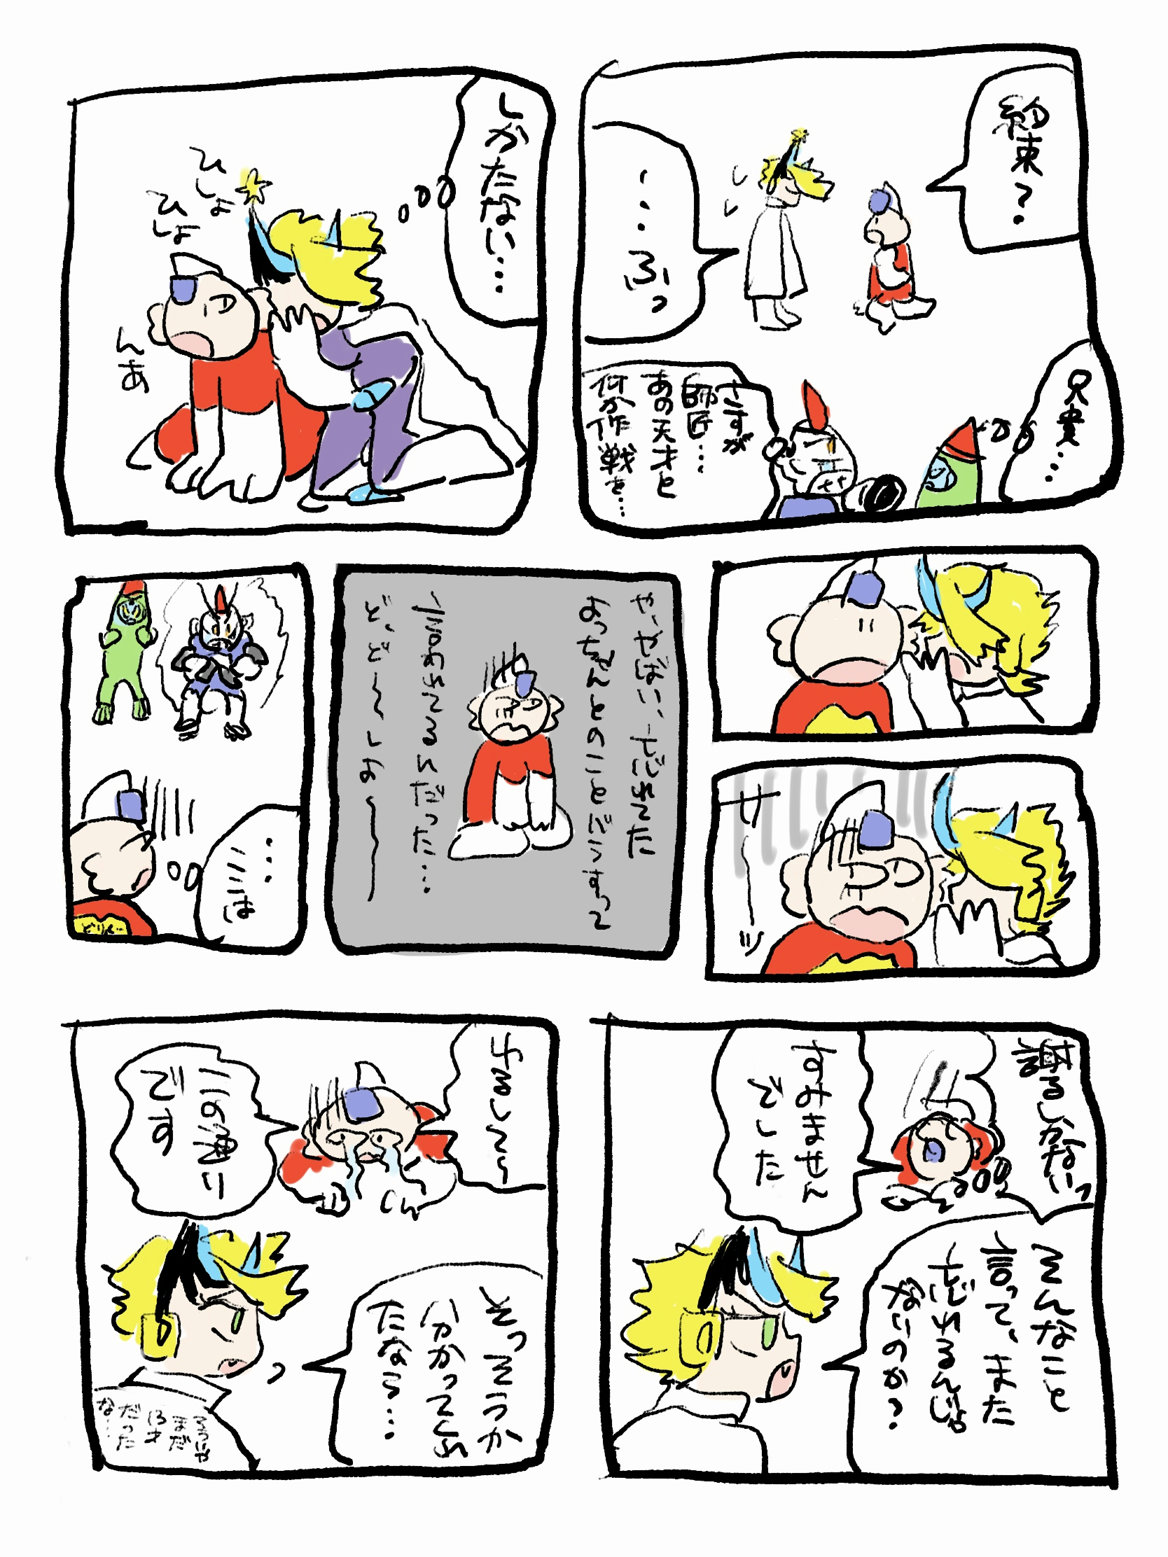 約束?
・・・ふっ
兄貴…
さすが
師匠…
あの天才と
何か作戦を…
しかたない…
ひしょ
ひしょ
んあ
サーーッ
や、やばい、忘れてた
よっちゃんとのことバラすって
言われてるんだった…
ど、ど〜しよ〜〜〜
…
ここは
どりん
謝るしかないっ
すみません
でした
そんなこと
言って、また
忘れるんじゃ
ないのか?
ゆるして〜〜
この通り
です
そっそうか
分かってくれ
たなら…
そういや
まだ
13才
だった
な…